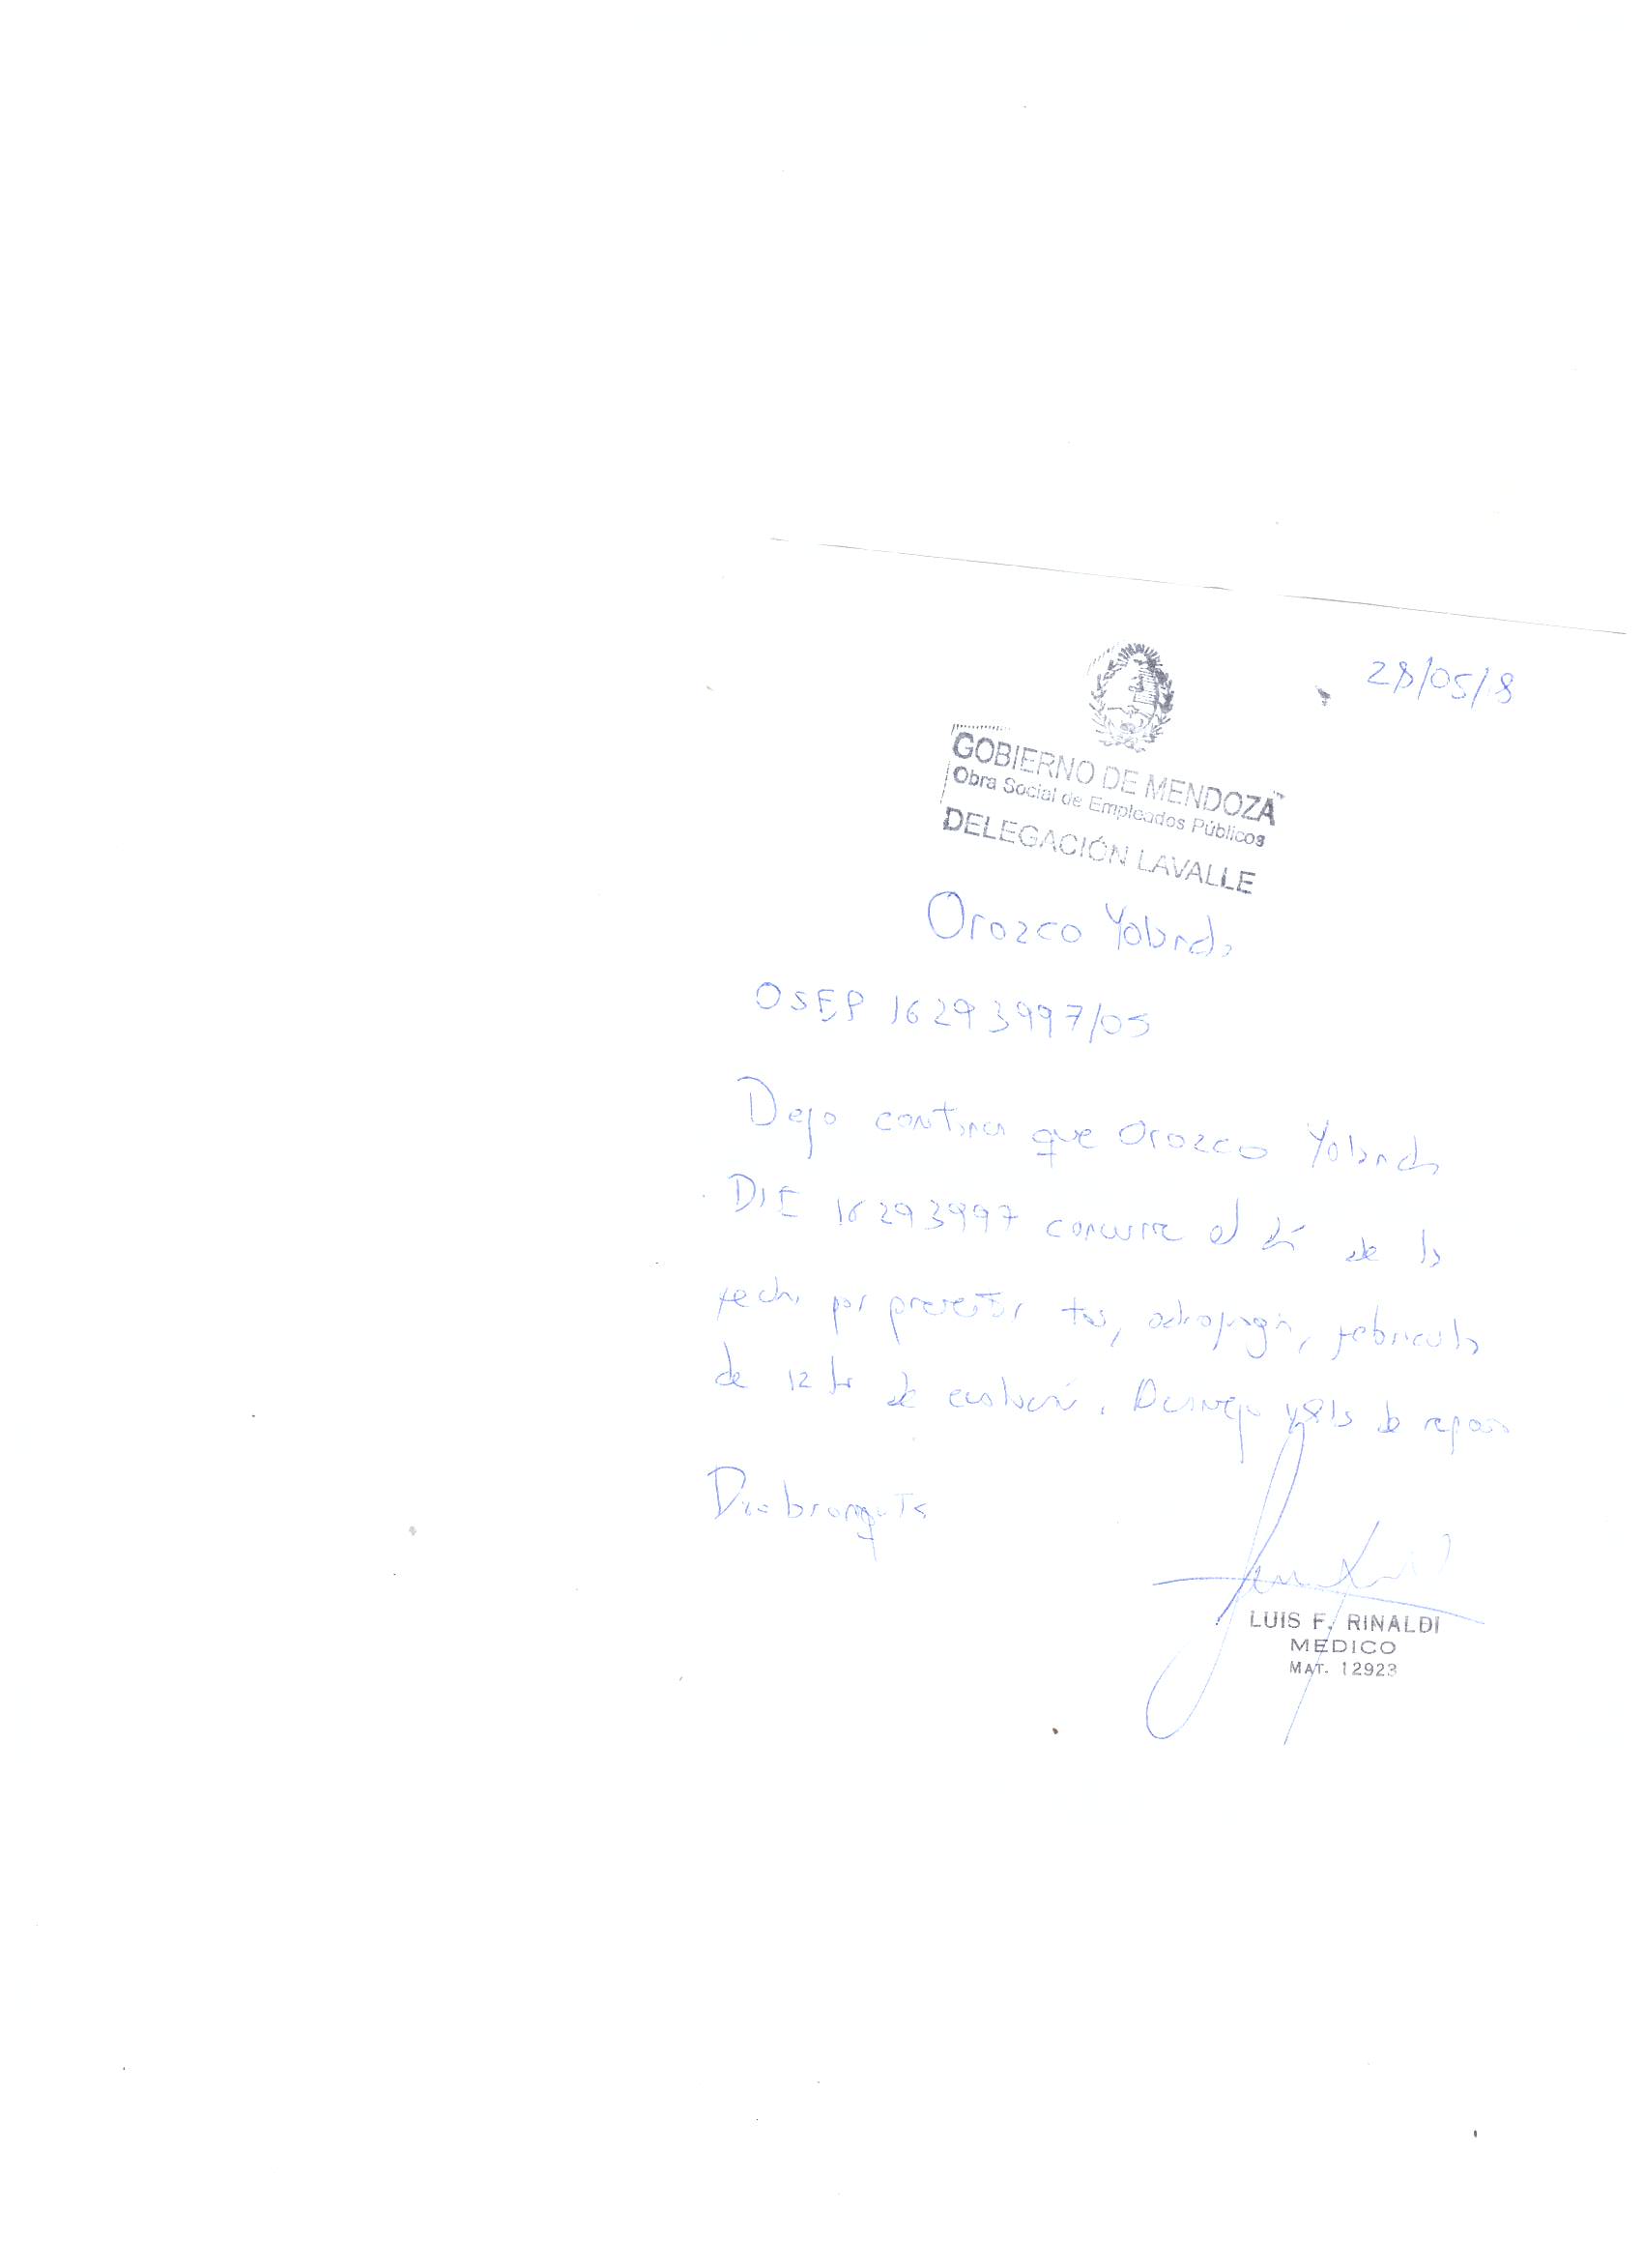 28/05/18
GOBIERNO DE MENDOZA
Obra Social de Empleados Públicos
DELEGACIÓN LAVALLE
Orozco Yolanda
OSEP 16293997/05
Dejo constancia que Orozco Yolanda
16293997 concurre el día de la
fecha por presentar tos, odinofagia, febrícula
de 12 hs de evolución. de reposo
Dx: bronquitis
LUIS F. RINALDI
MEDICO
MAT. 12923